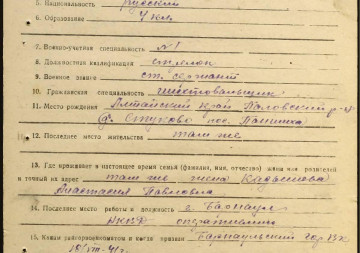 5. Национальность русский
6. Образование 7 кл.
7. Военно-учетная специальность №1
8. Должностная квалификация стрелок
9. Военное звание ст. сержант
10. Гражданская специальность
11. Место рождения Алтайский край Павловский р-н
(д. Стуково пос.
12. Последнее место жительства там же
13. Где проживает в настоящее время семья (фамилия, имя, отчество) жены или родителей
и точный их адрес там же жена
Анастасия Павловна
14. Последнее место работы и должность г. Барнаул
НКВД
15. Каким райгорвоенкоматом и когда призван Барнаульский гор ВК